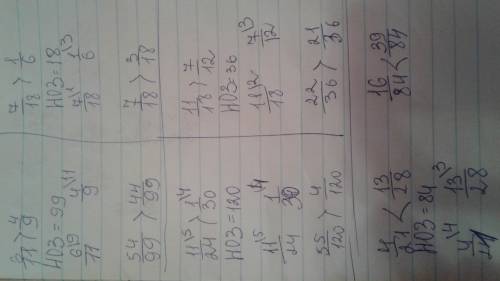 6/11 > 4/9
НОЗ=99
6\9/11 4\11/9
54/99 > 44/99
11\5/24 > 1\4/30
НОЗ=120
11\5/24 1\4/30
55/120 > 4/120
4/21 < 13/28
НОЗ=84
4\4/21 13\3/28
7/18 > 1/6
НОЗ=18
7\1/18 1\3/6
7/18 > 3/18
11/18 > 7/12
НОЗ=36
11\2/18 7\3/12
22/36 > 21/36
16/84 < 39/84